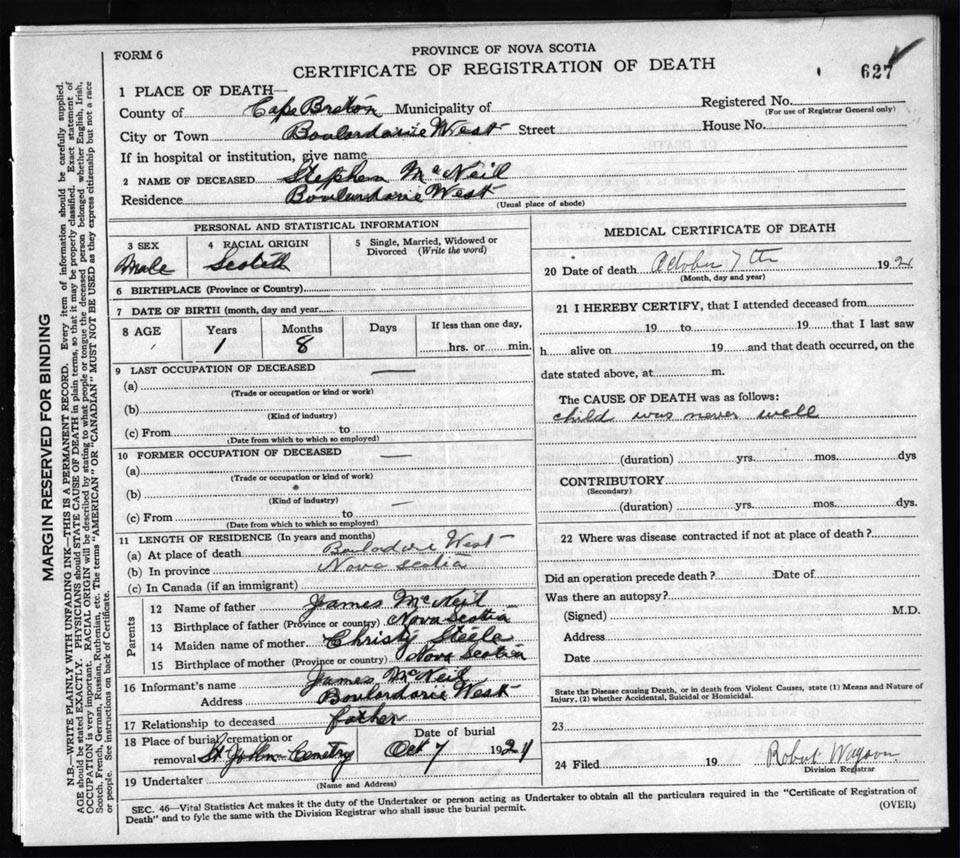 PROVINCE OF NOVA SCOTIA
FORM 6
CERTIFICATE OF REGISTRATION OF DEATH
627
1 PLACE OF DEATH—
County of Cape Breton Municipality of
Registered No.
(For use of Registrar General only)
City or Town Boulardarie West Street House No.
If in hospital or institution, give name
2 NAME OF DECEASED Stephen McNeil
Residence Boulardarie West
(Usual place of abode)
PERSONAL AND STATISTICAL INFORMATION
3 SEX 4 RACIAL ORIGIN 5 Single, Married, Widowed or
Divorced (Write the word)
Male Scotch
6 BIRTHPLACE (Province or Country)
7 DATE OF BIRTH (month, day and year)
8 AGE Years Months Days If less than one day,
1 8 hrs. or min.
9 LAST OCCUPATION OF DECEASED —
(a)
(Trade or occupation or kind or work)
(b)
(Kind of industry)
(c) From to
(Date from which to which so employed)
10 FORMER OCCUPATION OF DECEASED —
(a)
(Trade or occupation or kind of work)
(b)
(Kind of industry)
(c) From to —
(Date from which to which so employed)
11 LENGTH OF RESIDENCE (In years and months)
(a) At place of death Boulardrie West
(b) In province Nova Scotia
(c) In Canada (if an immigrant)
Parents
12 Name of father James McNeil
13 Birthplace of father (Province or country) Nova Scotia
14 Maiden name of mother Christy Steele
15 Birthplace of mother (Province or country) Nova Scotia
16 Informant's name James McNeil
Address Boulardarie West
17 Relationship to deceased Father
18 Place of burial, cremation or Date of burial
removal St John Cemetry Oct 7 1921
19 Undertaker
(Name and Address)
MEDICAL CERTIFICATE OF DEATH
20 Date of death October 7th 192
(Month, day and year)
21 I HEREBY CERTIFY, that I attended deceased from
19 to 19 that I last saw
h alive on 19 and that death occurred, on the
date stated above, at m.
The CAUSE OF DEATH was as follows:
child was never well
(duration) yrs. mos. dys
CONTRIBUTORY
(Secondary)
(duration) yrs. mos. dys.
22 Where was disease contracted if not at place of death?
Did an operation precede death? Date of
Was there an autopsy?
(Signed) M.D.
Address
Date
State the Disease causing Death, or in death from Violent Causes, state (1) Means and Nature of
Injury, (2) whether Accidental, Suicidal or Homicidal.
23
24 Filed 19 Robert
Division Registrar
SEC. 46—Vital Statistics Act makes it the duty of the Undertaker or person acting as Undertaker to obtain all the particulars required in the "Certificate of Registration of
Death" and to fyle the same with the Division Registrar who shall issue the burial permit.
(OVER)
MARGIN RESERVED FOR BINDING
N.B.—WRITE PLAINLY WITH UNFADING INK—THIS IS A PERMANENT RECORD. Every item of information should be carefully supplied.
AGE should be stated EXACTLY. PHYSICIANS should STATE CAUSE OF DEATH in plain terms, so that it may be properly classified. Exact statement of
OCCUPATION is very important. RACIAL ORIGIN will be described by stating to what people or tongue the deceased person belonged whether English, Irish,
Scotch, French, German, Russian, Ruthenian, etc. The terms "AMERICAN" OR "CANADIAN" MUST NOT BE USED as they express citizenship but not a race
or people. See instructions on back of Certificate.